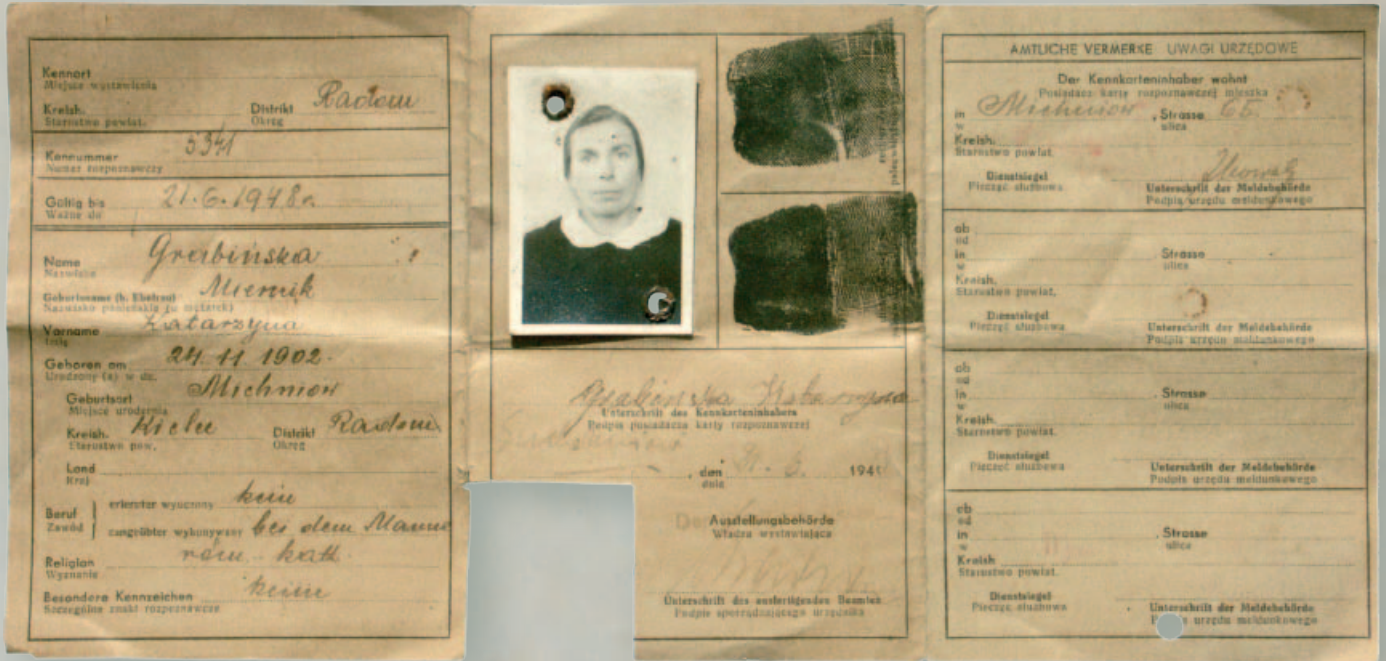 Kennort
Miejsce wystawienia
Kreish. Distrikt Radom
Starostwo powiat. Okręg
Kennummer 5341
Numer rozpoznawczy
Gültig bis 21.6.1948r.
Ważne do
Name Grabińska
Nazwisko
Geburtsname (b. Ehefrau) Miernik
Nazwisko panieńskie (u mężatek)
Vorname Katarzyna
Imię
Geboren am 24.11.1902.
Urodzony (a) w dn.
Geburtsort Michniow
Miejsce urodzenia
Kreish. Kielce Distrikt Radom
Starostwo pow. Okręg
Land
Kraj
Beruf erlernter wyuczony kein
Zawód ausgeübter wykonywany bei dem Manne
Religion röm. kath.
Wyznanie
Besondere Kennzeichen keine
Szczególne znaki rozpoznawcze
Grabinska Katarzyna
Unterschrift des Kennkarteninhabers
Podpis posiadacza karty rozpoznawczej
, den 21. 6. 194
dnia
Ausstellungsbehörde
Władza wystawiająca
Unterschrift des ausfertigenden Beamten
Podpis sporządzającego urzędnika
AMTLICHE VERMERKE UWAGI URZĘDOWE
Der Kennkarteninhaber wohnt
Posiadacz karty rozpoznawczej mieszka
in Michniow , Strasse 65.
w ulica
Kreish.
Starostwo powiat.
Dienstsiegel Unterschrift der Meldebehörde
Pieczęć służbowa Podpis urzędu meldunkowego
ab
od
in , Strasse
w ulica
Kreish.
Starostwo powiat.
Dienstsiegel Unterschrift der Meldebehörde
Pieczęć służbowa Podpis urzędu meldunkowego
ab
od
in , Strasse
w ulica
Kreish.
Starostwo powiat.
Dienstsiegel Unterschrift der Meldebehörde
Pieczęć służbowa Podpis urzędu meldunkowego
ab
od
in , Strasse
w ulica
Kreish
Starostwo powiat.
Dienstsiegel Unterschrift der Meldebehörde
Pieczęć służbowa urzędu meldunkowego